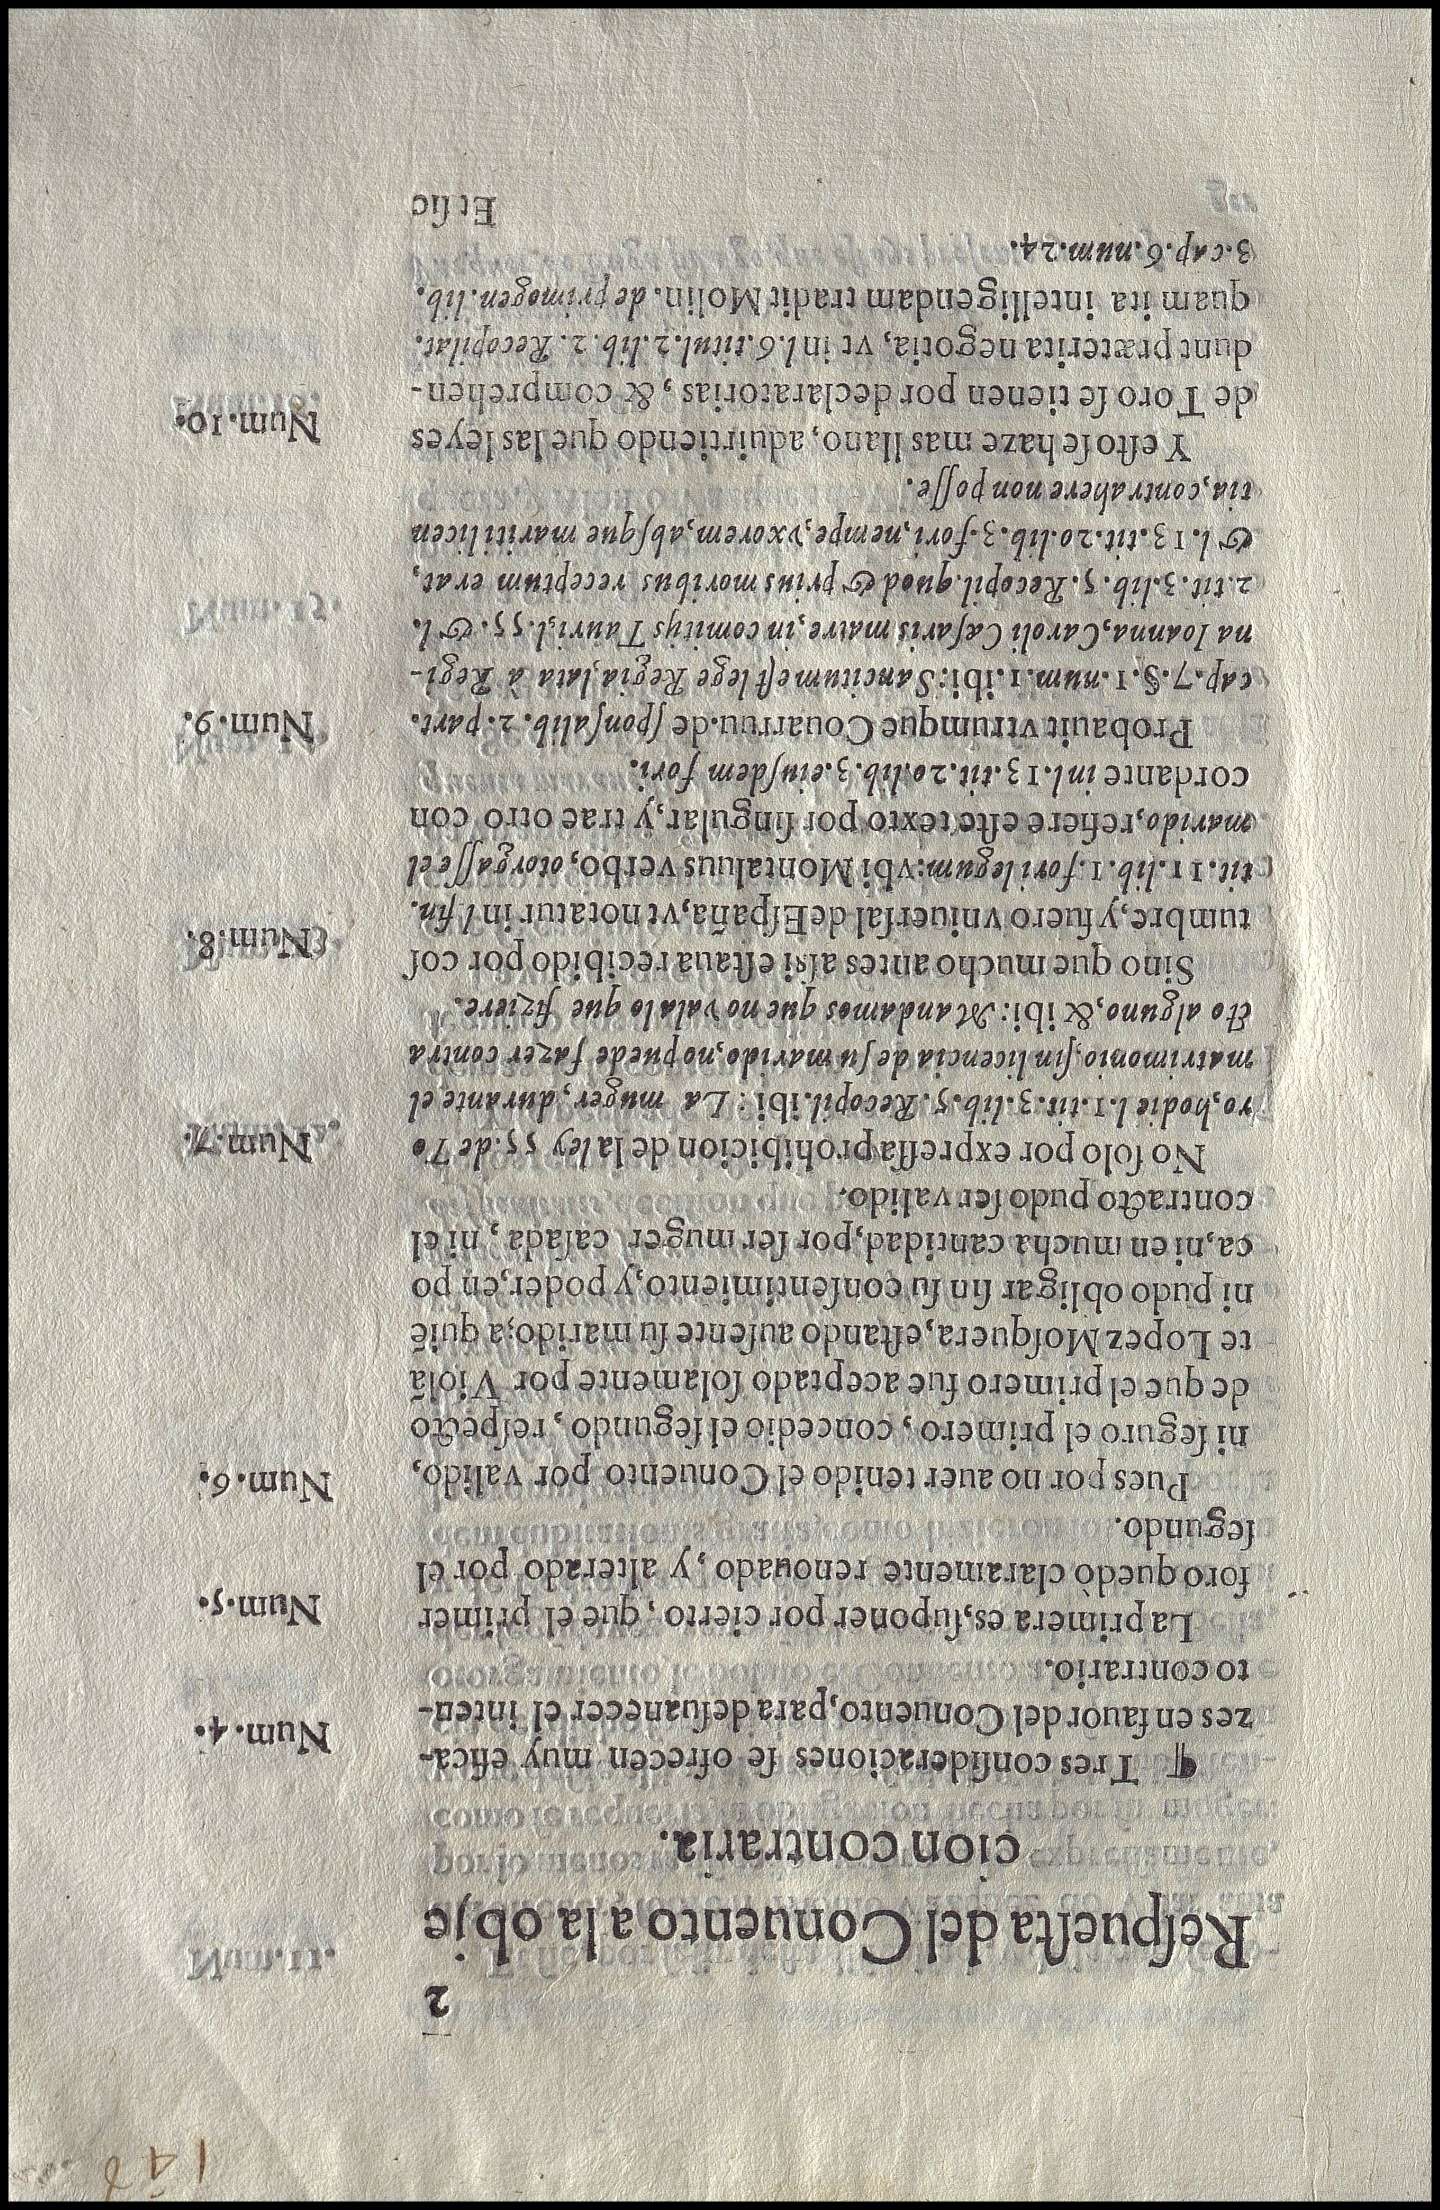 146
2
Reſpueſta del Conuento a la obje
cion contraria.
¶ Tres conſideraciones ſe ofrecen muy efica-
Num. 4.
zes en fauor del Conuento, para deſuanecer el inten-
to contrario.
La primera es, ſuponer por cierto, que el primer
Num. 5.
foro quedò claramente renouado, y alterado por el
ſegundo.
Pues por no auer tenido el Conuento por valido,
Num. 6.
ni ſeguro el primero, concedio el ſegundo, reſpecto
de que el primero fue aceptado ſolamente por Violã
te Lopez Moſquera, eſtando auſente ſu marido; a quiẽ
ni pudo obligar ſin ſu conſentimiento, y poder, en po
ca, ni en mucha cantidad, por ſer muger caſada, ni el
contracto pudo ſer valido.
No ſolo por expreſſa prohibicion de la ley 55. de To
Num. 7.
ro, hodie l. 1. tit. 3. lib. 5. Recopil. ibi: La muger, durante el
matrimonio, ſin licencia de ſu marido, no puede fazer contra
cto alguno, & ibi: Mandamos que no vala lo que fiziere.
Sino que mucho antes aſsi eſtaua recibido por coſ
Num. 8.
tumbre, y fuero vniuerſal de Eſpaña, vt notatur in l. fin.
tit. 11. lib. 1. fori legum: vbi Montaluus verbo, otorgaſſe el
marido, refiere eſte texto por ſingular, y trae otro con
cordante in l. 13. tit. 20. lib. 3. eiuſdem fori.
Probauit vtrumque Couarruu. de ſponſalib. 2. part.
Num. 9.
cap. 7. §. 1. num. 1. ibi: Sancitum eſt lege Regia, lata à Regi-
na Ioanna, Caroli Cæſaris matre, in comitijs Tauri, l. 55. & l.
2. tit. 3. lib. 5. Recopil. quod & prius moribus receptum erat,
& l. 13. tit. 20. lib. 3. fori, nempe, vxorem, abſque mariti licen
tia, contrahere non poſſe.
Y eſto ſe haze mas llano, aduirtiendo que las leyes
Num. 10.
de Toro ſe tienen por declaratorias, & comprehen-
dunt præterita negotia, vt in l. 6. titul. 2. lib. 2. Recopilat.
quam ita intelligendam tradit Molin. de primogen. lib.
3. cap. 6. num. 24.
Et ſic